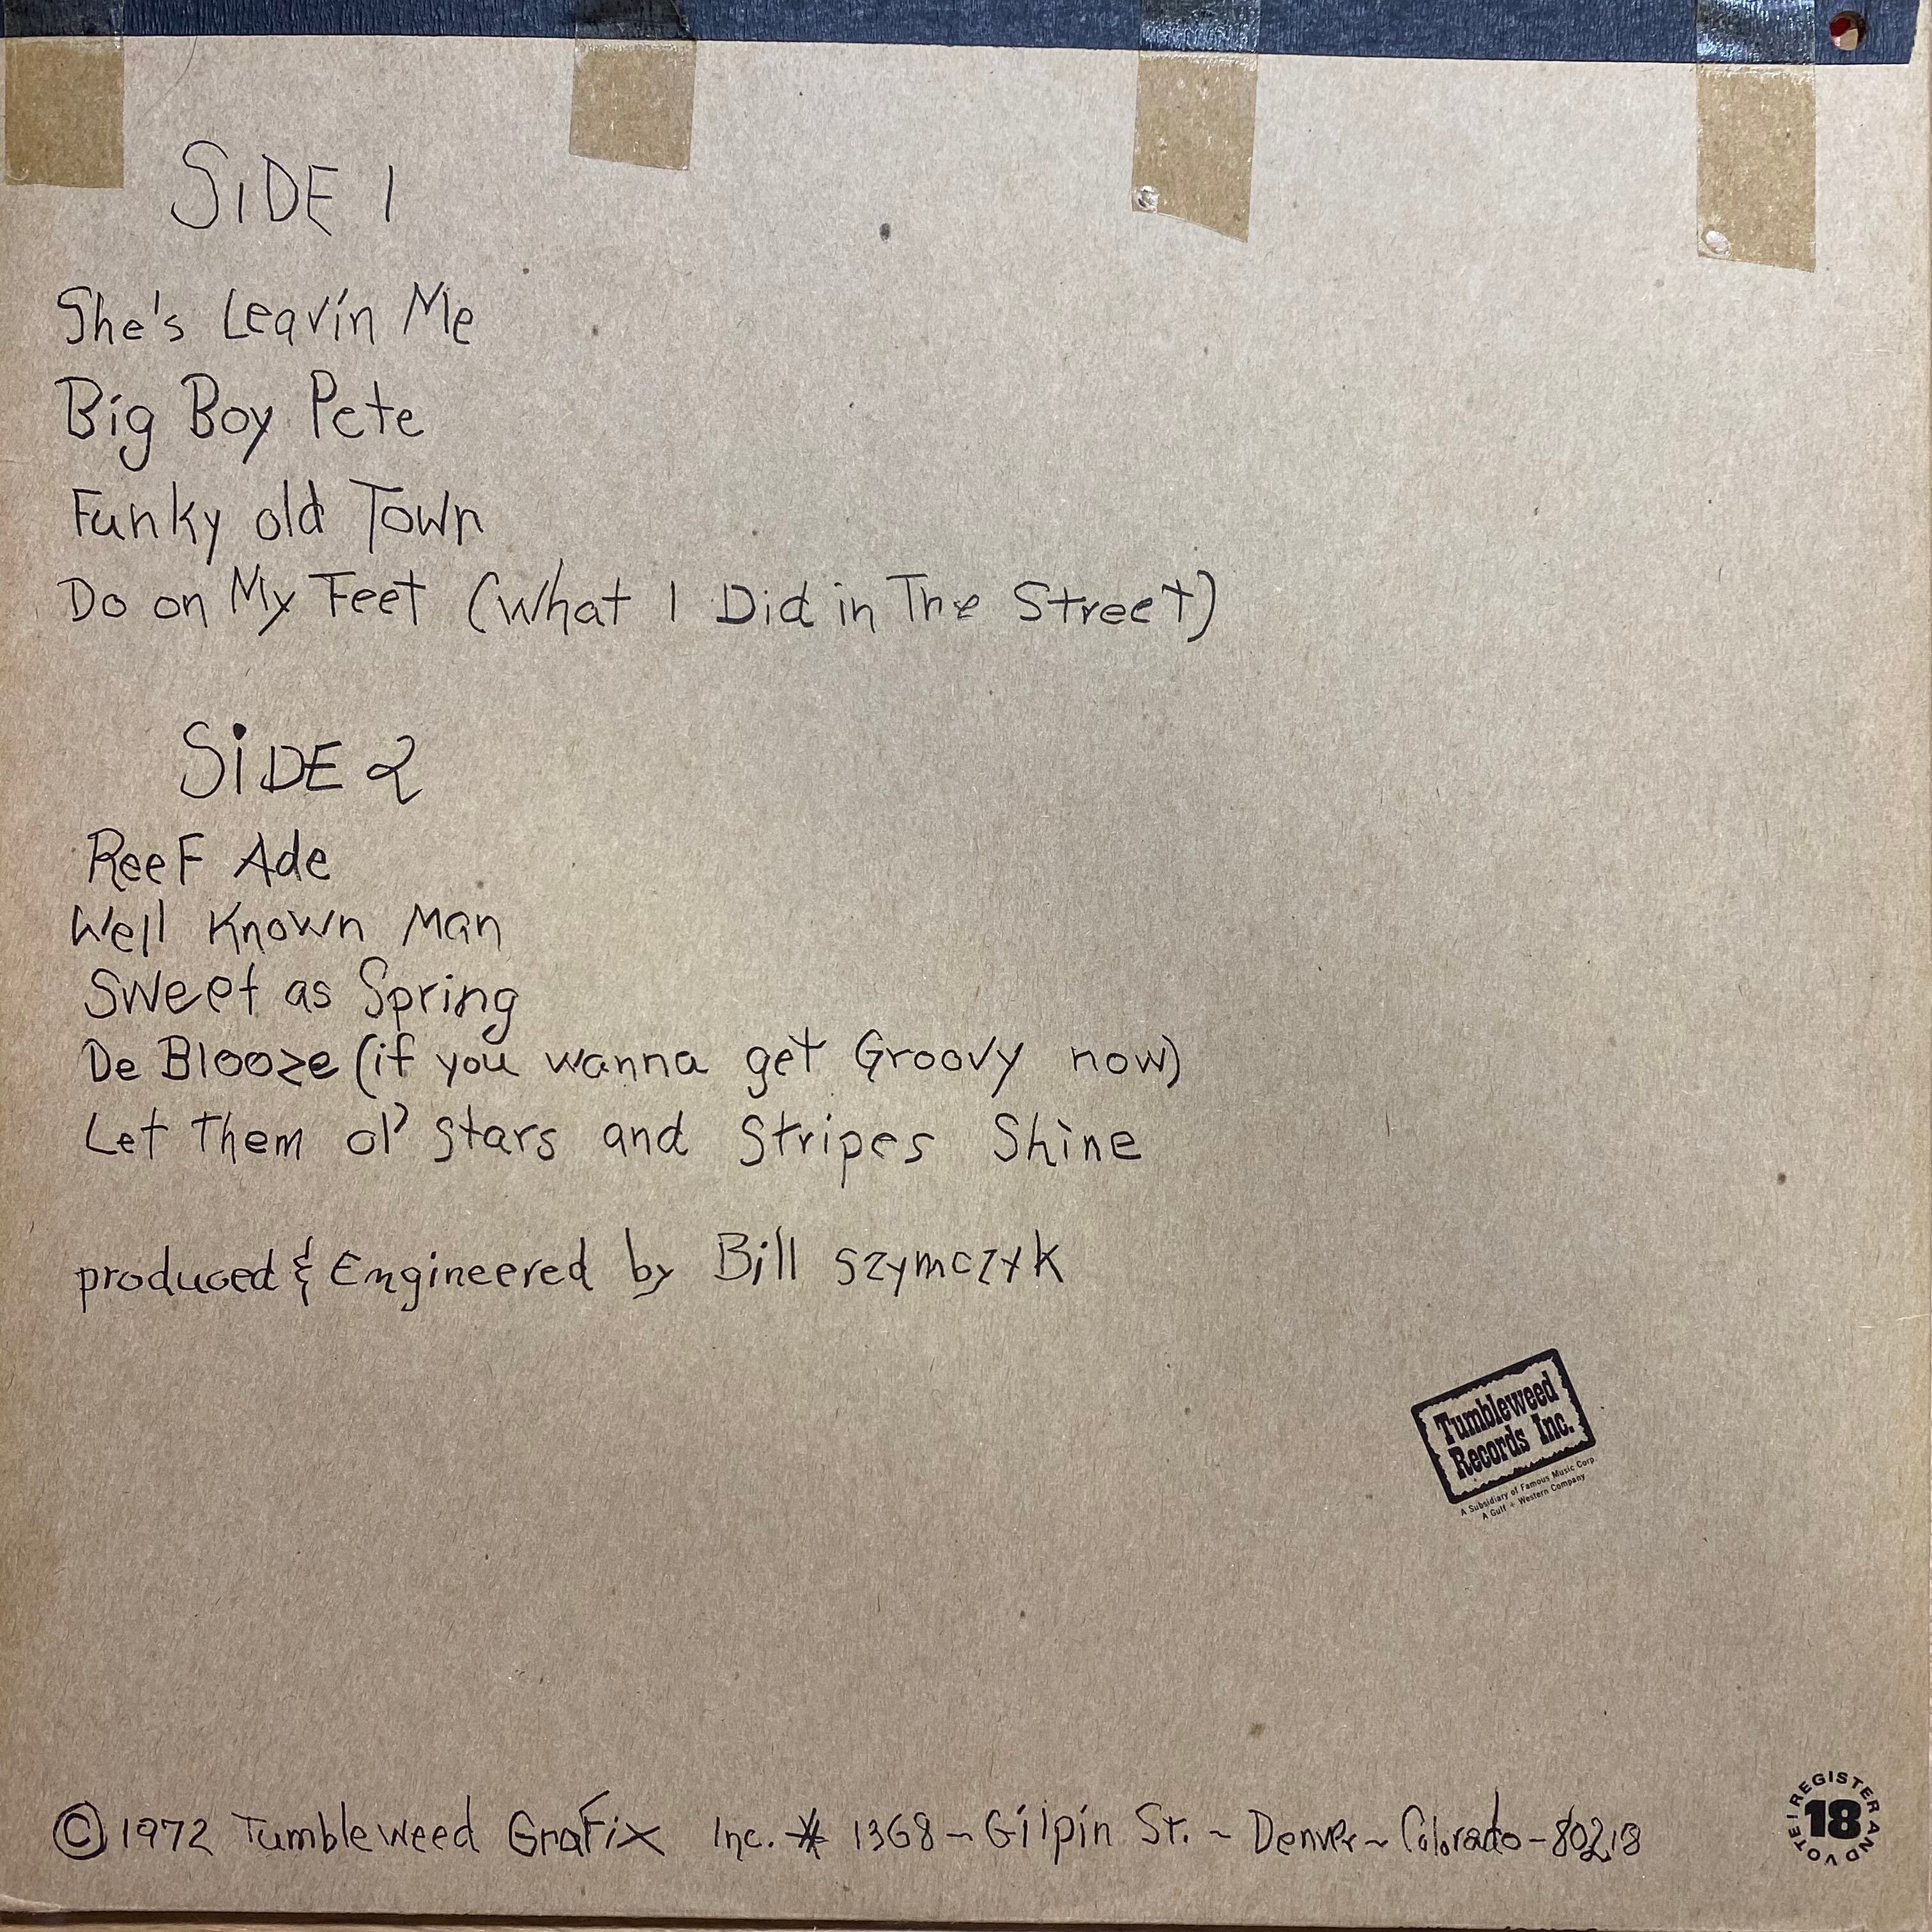 SiDE 1
She's Leavin Me
Big Boy Pete
Funky old Town
Do on My Feet (What I Did in The Street)
SiDE 2
ReeF Ade
Well Known Man
Sweet as Spring
De Blooze (if you wanna get Groovy now)
Let Them ol' Stars and Stripes Shine
produced & Engineered by Bill Szymczyk
Tumbleweed
Records Inc.
A Subsidiary of Famous Music Corp.
A Gulf + Western Company
© 1972 Tumbleweed GraFix Inc. * 1368 - Gilpin St. ~ Denver ~ Colorado - 80218
REGISTER AND VOTE!
18